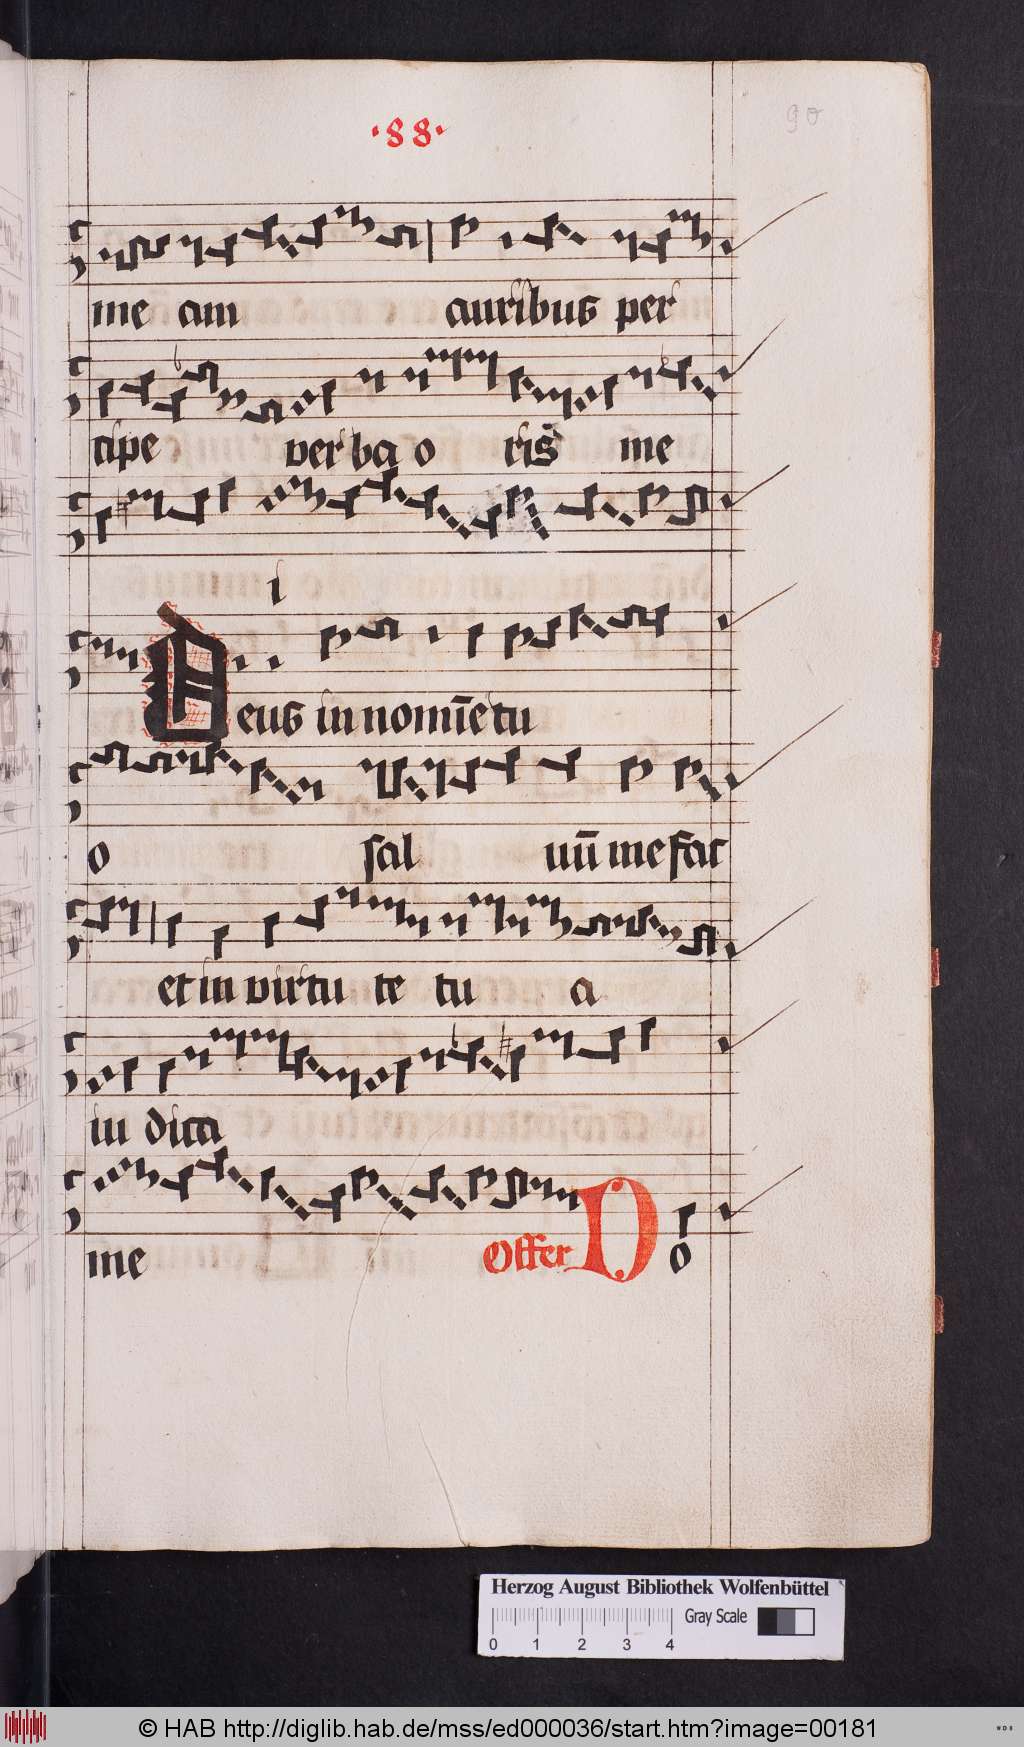 ·88·
90
me am auribus per
cipe verba o ris me
i
Deus in nomīe tu
o sal uū me fac
et in virtu te tu a
iu dica
me Offer Do
Herzog August Bibliothek Wolfenbüttel
Gray Scale
0 1 2 3 4
© HAB http://diglib.hab.de/mss/ed000036/start.htm?image=00181
WDB